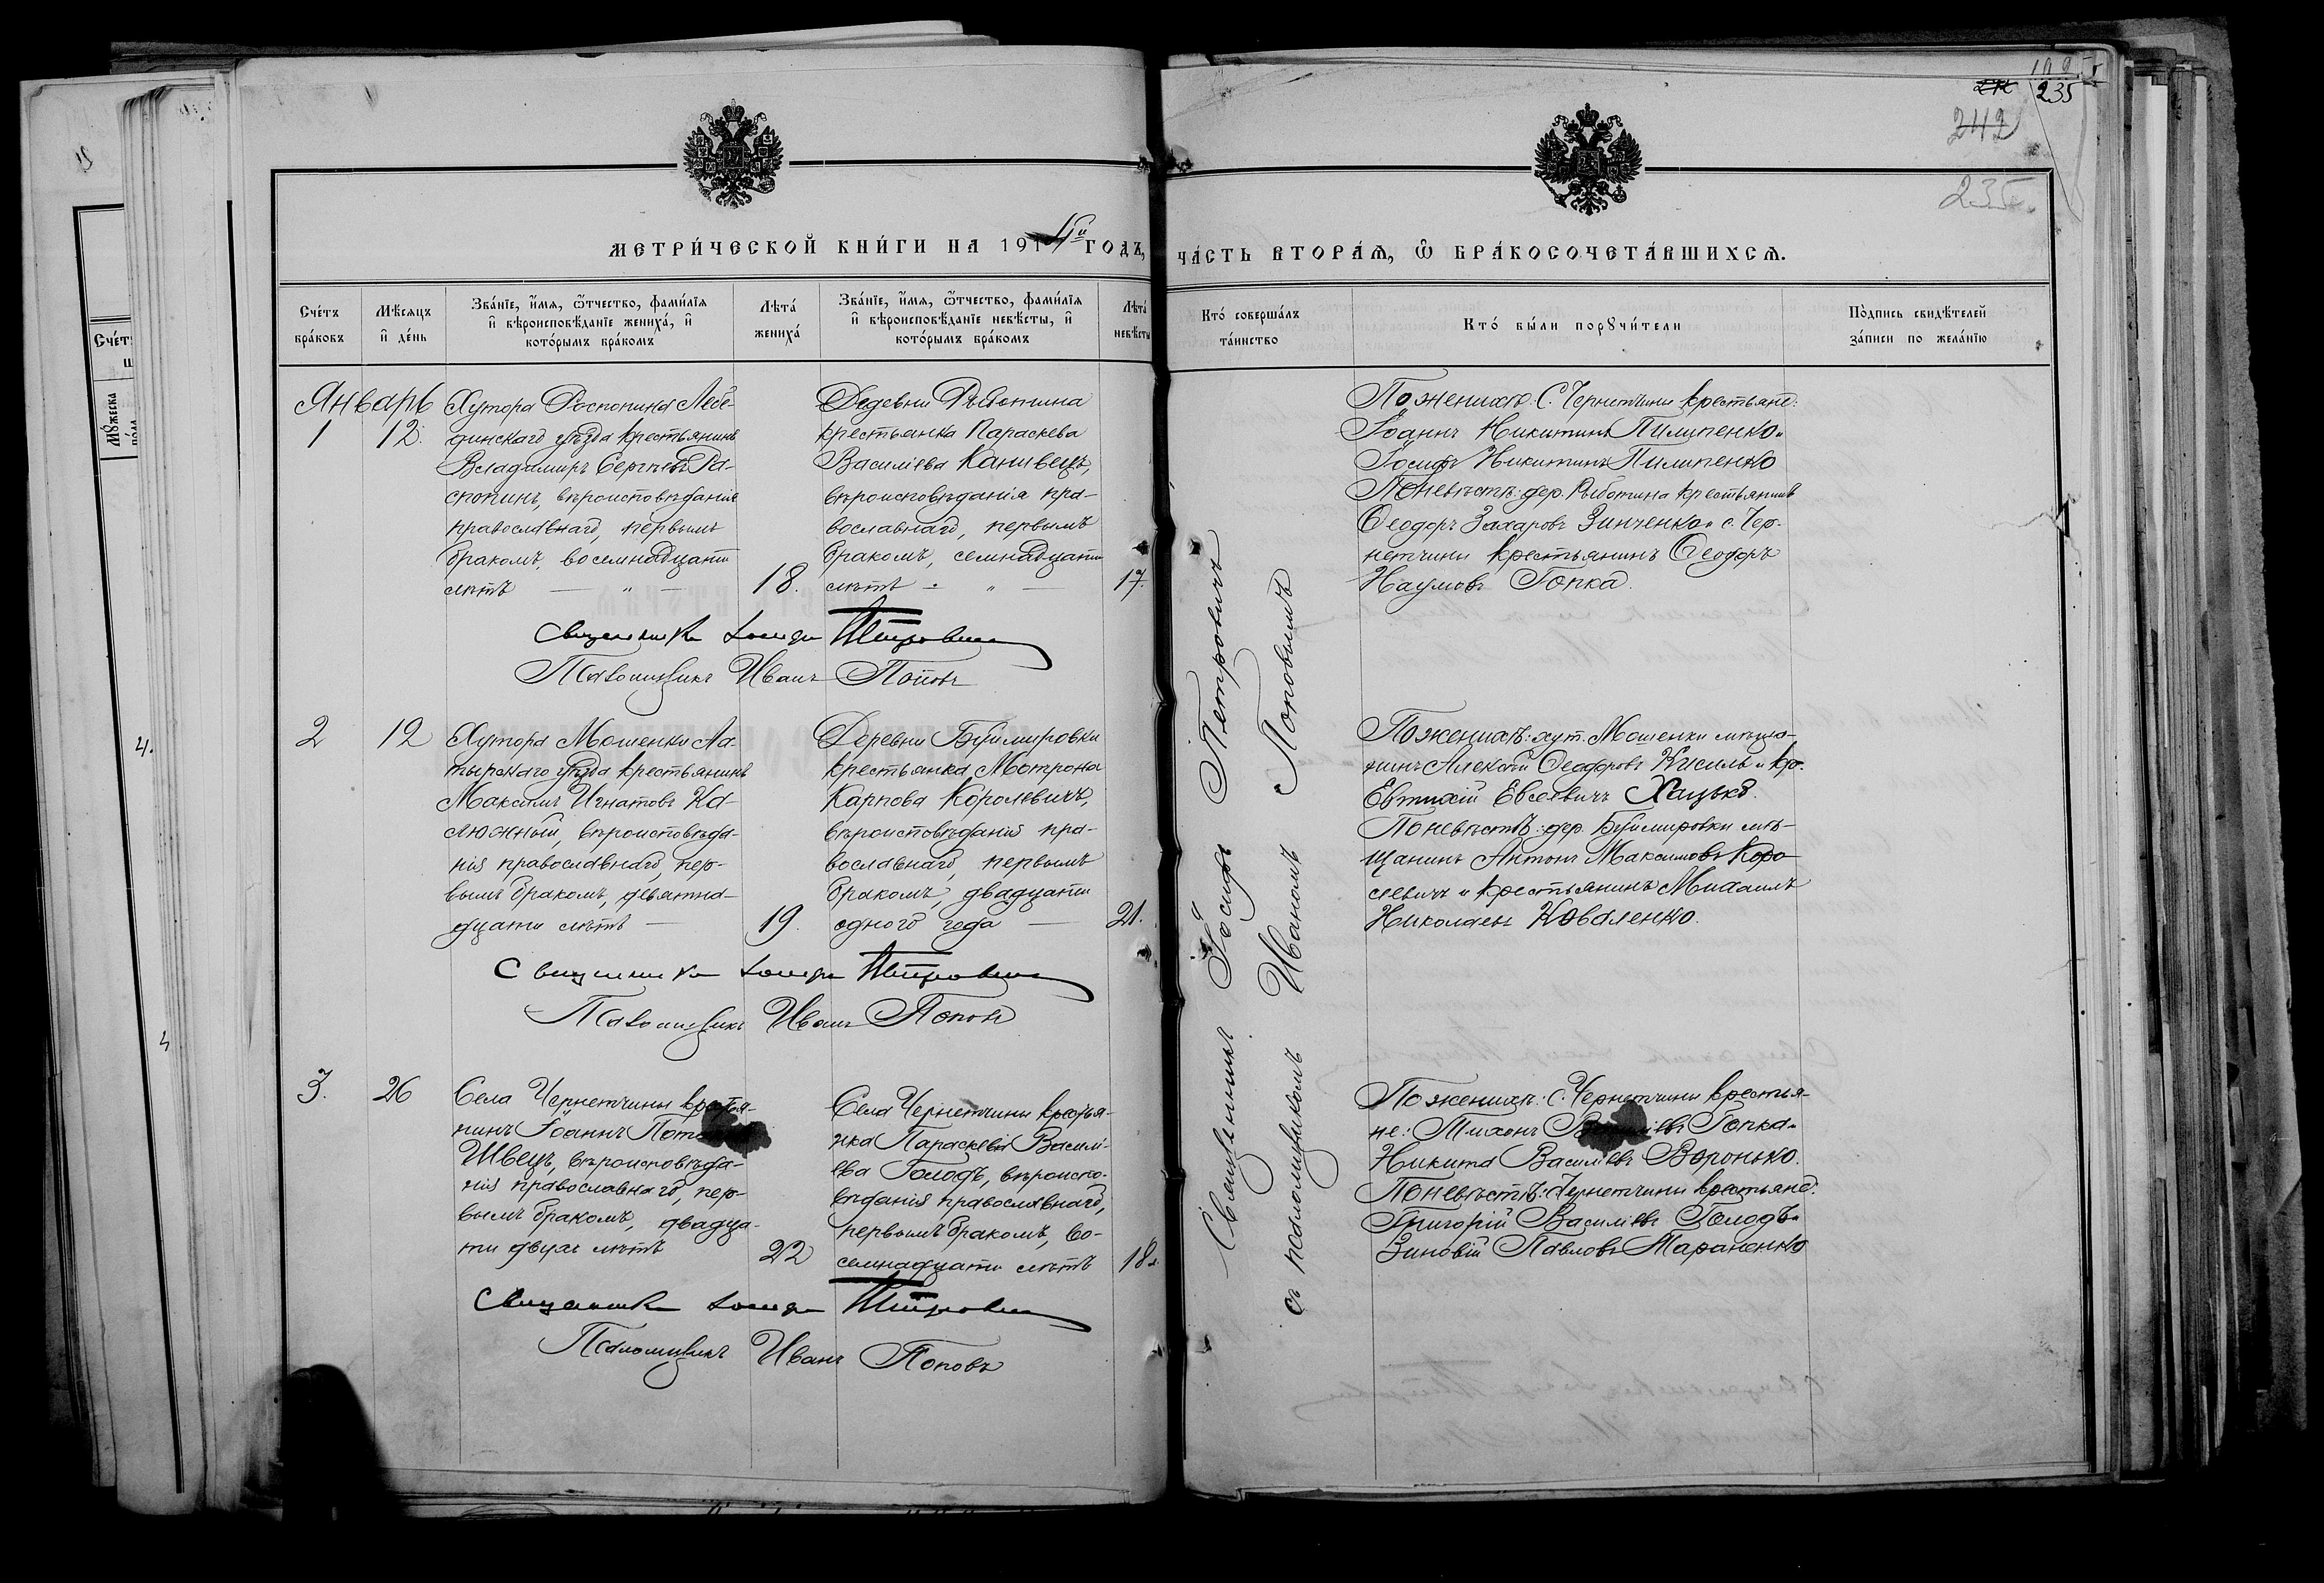 235
242
235
МЕТРИ́ЧЕСКОЙ КНИ́ГИ НА 1914й ГОДЪ,
ЧА́СТЬ ВТОРА́Ѧ, Ѽ БРА́КОСОЧЕТА́ВШИХСѦ.
Сче́тъ бра́ковъ
Мѣ́сяцъ и҆ де́нь
Зва́нїе, и҆́мѧ, ѻ҆́тчество, фами́лїѧ и҆ вѣроисповѣ́данїе жениха́, и҆ кото́рымъ бра́комъ
Лѣта́ жениха́
Зва́нїе, и҆́мѧ, ѻ҆́тчество, фами́лїѧ и҆ вѣроисповѣ́данїе невѣ́сты, и҆ кото́рымъ бра́комъ
Лѣта́ невѣ́сты
Кто́ соверша́лъ та́инство
Кто́ бы́ли порꙋчи́тели
По́дпись свидѣ́телей за́писи по жела́нїю
Январь
1
12.
Хутора Роспопина Лебе-
динскаго уѣзда крестьянинъ
Владимиръ Сергѣевъ Ра-
спопинъ, вѣроисповѣданія
православнаго, первымъ
бракомъ, восемнадцати
лѣтъ — " —
18.
Деревни Рыботина
крестьянка Параскева
Василіева Канивецъ,
вѣроисповѣданія пра-
вославнаго, первымъ
бракомъ, семнадцати
лѣтъ - " —
17.
Священникъ Іосифъ Петровичъ
Псаломщикъ Иванъ Поповъ
По женихѣ: С. Чернетчины крестьяне:
Іоаннъ Никитинъ Пилипенко и
Іосифъ Никитинъ Пилипенко
По невѣстѣ: дер. Рыботина крестьянинъ
Ѳеодоръ Захаровъ Зинченко и с. Чер-
нетчины крестьянинъ Ѳеодоръ
Наумовъ Гопка.
2
12
Хутора Мошенки Ах-
тырскаго уѣзда крестьянинъ
Максимъ Игнатовъ Ка-
люжный, вѣроисповѣда-
нія православнаго, пер-
вымъ бракомъ, девятна-
дцати лѣтъ —
19.
Деревни Буймировки
крестьянка Мотрона
Карпова Королевичъ,
вѣроисповѣданія пра-
вославнаго, первымъ
бракомъ, двадцати
одного года —
21.
Священникъ Іосифъ Петровичъ
Псаломщикъ Иванъ Поповъ
По женихѣ: хут. Мошенки мѣща-
нинъ Алексѣй Ѳеодоровъ Кисиль и кр.
Евтихій Евсеевичъ Хацько.
По невѣстѣ: дер. Буймировки мѣ-
щанинъ Антонъ Максимовъ Коро-
левичъ и крестьянинъ Михаилъ
Николаевъ Коваленко.
3.
26
Села Чернетчины крестья-
нинъ Іоаннъ
Швецъ, вѣроисповѣда-
нія православнаго, пер-
вымъ бракомъ, двадца-
ти двухъ лѣтъ
22
Села Чернетчины крестья-
нка Параскева Василі-
ева Голодъ, вѣроиспо-
вѣданія православнаго,
первымъ бракомъ, во-
семнадцати лѣтъ
18.
Священникъ Іосифъ Петровичъ
Псаломщикъ Иванъ Поповъ
По женихѣ: С. Чернетчины крестья-
не: Тихонъ Гопка и
Никита Василіевъ Воронько.
По невѣстѣ: Чернетчины крестьяне:
Григорій Василіевъ Голодъ и
Зиновій Павловъ Мараненко
Священникъ Іосифъ Петровичъ
съ псаломщикомъ Иваномъ Поповымъ